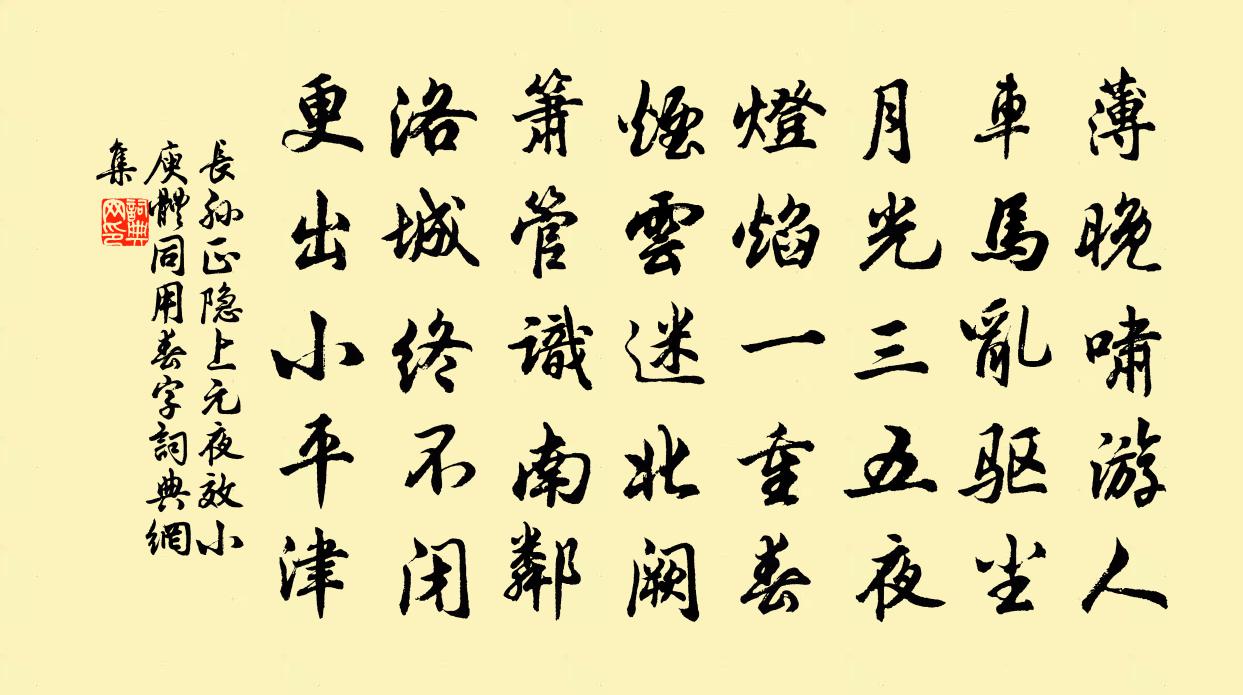 薄晚嘯游人
車馬亂驱尘
月光三五夜
燈焰一重春
煙雲迷北阙
簫管識南鄰
洛城终不闭
更出小平津
長孙正隐上元夜效小
庾體同用春字詞典網
集
詞典网印